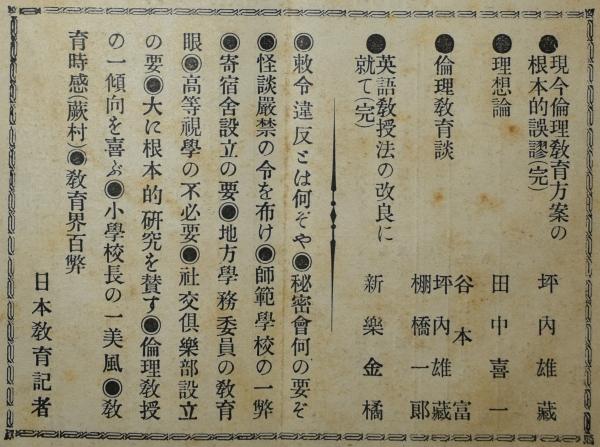 ●現今倫理教育方案の根本的誤謬(完) 坪内雄藏
●理想論 田中喜一
●倫理教育談 谷本富
坪內雄藏
棚橋一郞
●英語敎授法の改良に就て(完) 新樂金橘
◉敕令違反とは何ぞや◉秘密會何の要ぞ
◉怪談嚴禁の令を布け◉師範學校の一弊
◉寄宿舍設立の要◉地方學務委員の敎育
眼◉高等視學の不必要◉社交俱樂部設立
の要◉大に根本的硏究を賛す◉倫理敎授
の一傾向を喜ぶ◉小學校長の一美風◉敎
育時感(蕨村)◉敎育界百弊
日本敎育記者